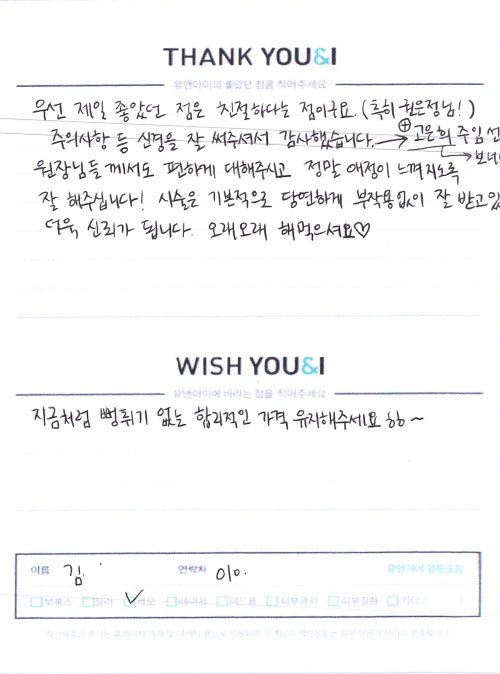 THANK YOU&I
유앤아이의 좋았던 점을 적어주세요
우선 제일 좋았던 점은 친절하다는 점이구요. (특히 권은정님!)
주의사항 등 신경을 잘 써주셔서 감사했습니다. → ⊕고은희 주임
원장님들께서도 편하게 대해주시고 정말 애정이 느껴지도록
잘 해주십니다! 시술은 기본적으로 당연하게 부작용없이 잘 받고있
더욱 신뢰가 됩니다. 오래오래 해먹으셔요♡
WISH YOU&I
유앤아이에 바라는 점을 적어주세요
지금처럼 뻥튀기 없는 합리적인 가격 유지해주세요 ㅎㅎ~
이름 김 연락처 010. 유앤아이 영등포점
보톡스 필러 제모 레이저 여드름 피부관리 피부질환 기타 ( )